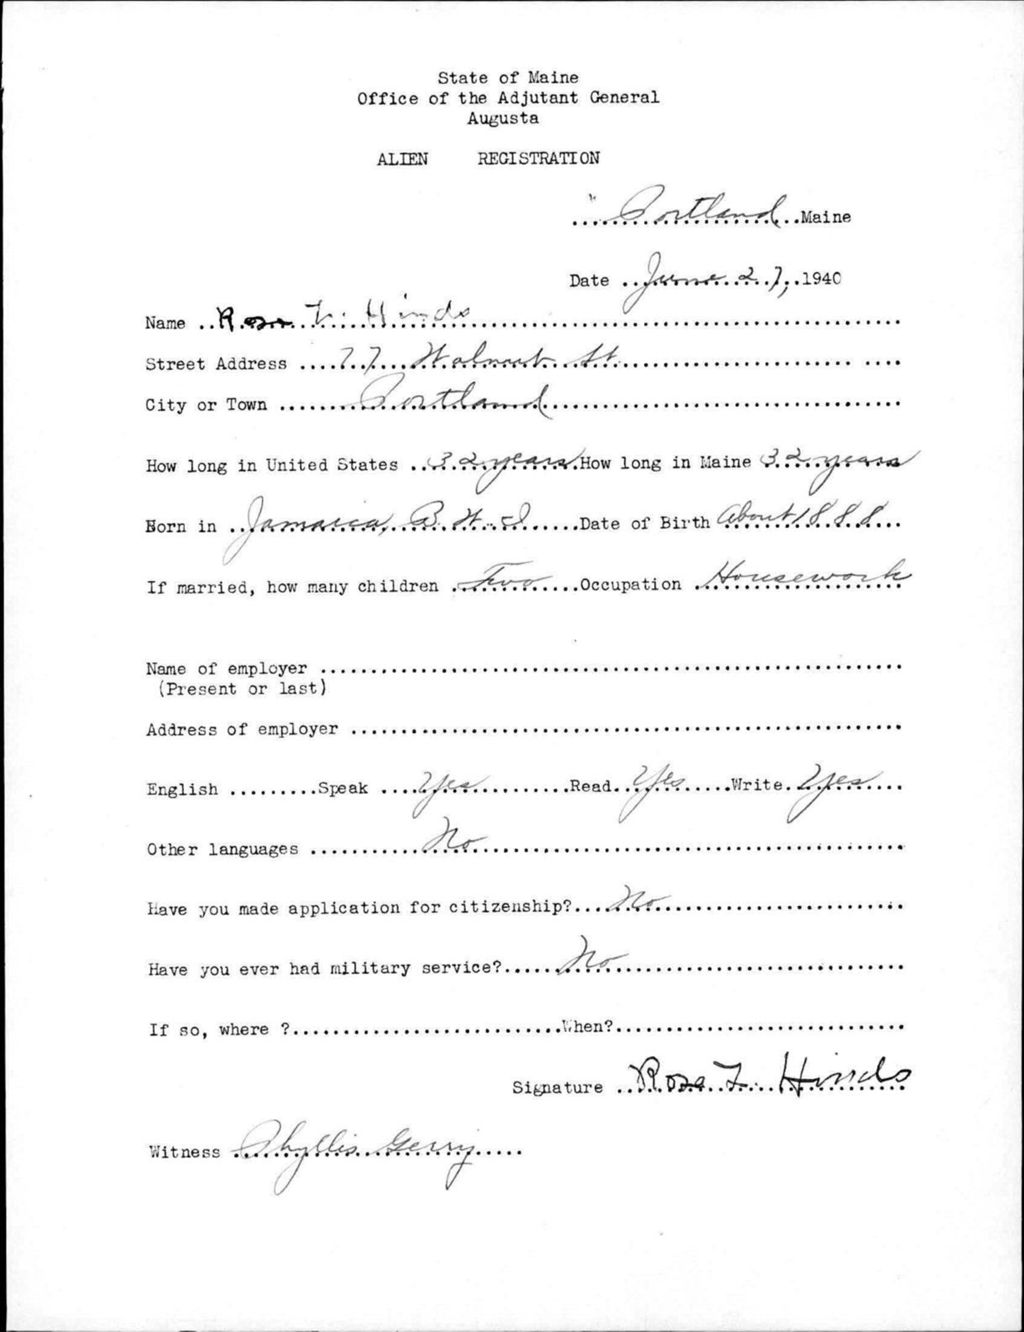 State of Maine
Office of the Adjutant General
Augusta
ALIEN REGISTRATION
Portland Maine
Date June 27, 1940
Name Rose L. Hinds
Street Address 77 Walnut St.
City or Town Portland
How long in United States 32 years How long in Maine 32 years
Born in Jamaica, B.W.I Date of Birth About 1888
If married, how many children Two Occupation Housework
Name of employer
(Present or last)
Address of employer
English Speak Yes Read Yes Write Yes
Other languages No
Have you made application for citizenship? No
Have you ever had military service? No
If so, where ? When?
Signature Rose L. Hinds
Witness Phyllis Gerry